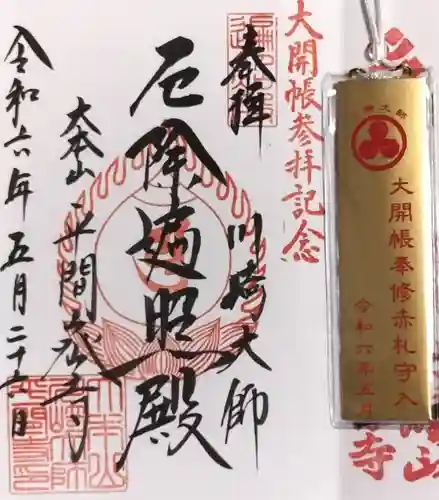 大開帳参拝記念
奉拝
川崎大師
厄除遍照殿
大本山
平間寺
令和六年五月二十六日
大開帳奉修赤札守入
令和六年五月
山
寺